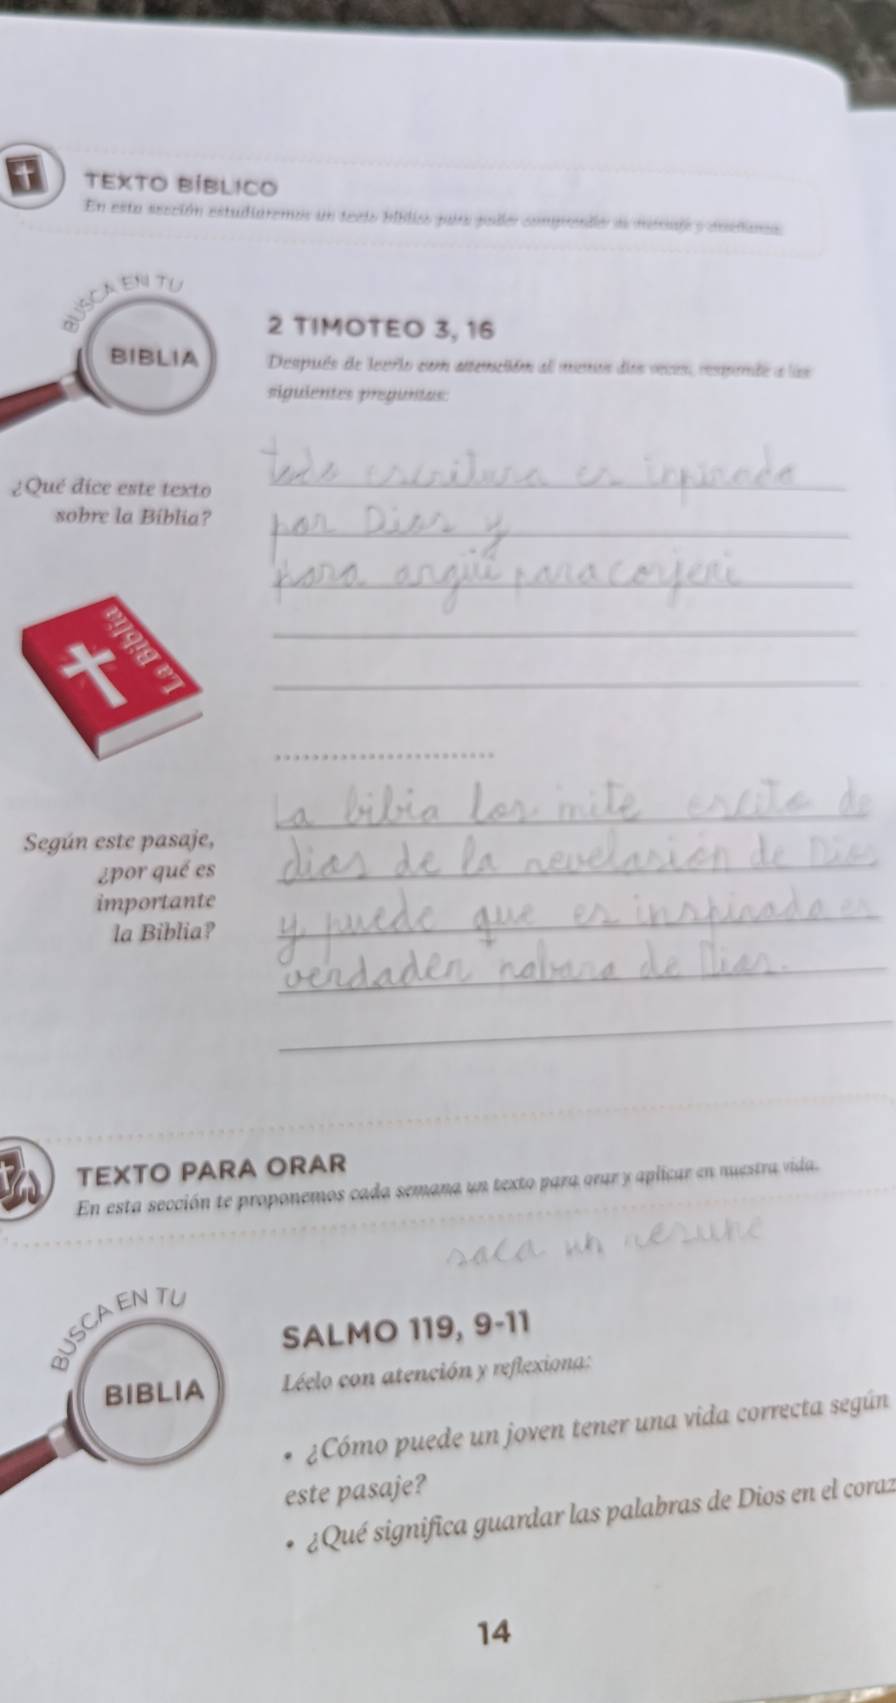 TEXTO BÍBLICO
En esta sección estudiaremos un texto bíblico para poder comprender su mensaje y enseñanza.
BUSCA EN TU
BIBLIA
2 TIMOTEO 3, 16
Después de leerlo con atención al menos dos veces, responde a las
siguientes preguntas:
¿Qué dice este texto
sobre la Biblia?
todo escritura es inpirada
por Dios y
para argüi para corjeri
La Biblia
Según este pasaje,
¿por qué es
importante
la Biblia?
La bibia los mite escito de
dios de la revelasión de Dios
y puede que es inspirada es
verdader de Dios.
TEXTO PARA ORAR
En esta sección te proponemos cada semana un texto para orar y aplicar en nuestra vida.
saca un resume
BUSCA EN TU
BIBLIA
SALMO 119, 9-11
Léelo con atención y reflexiona:
• ¿Cómo puede un joven tener una vida correcta según
este pasaje?
• ¿Qué significa guardar las palabras de Dios en el coraz
14